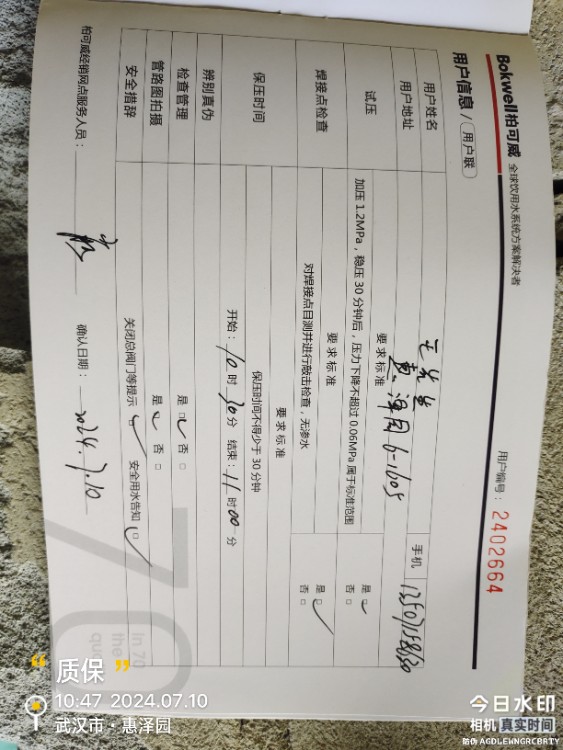 Bokwell柏可威 全球饮用水系统方案解决者
用户编号：2402664
用户信息 / 用户联
用户姓名 王先生 手机
用户地址 惠泽园6-1605
试压 要求标准
加压1.2MPa，稳压30分钟后，压力下降不超过0.06MPa属于标准范围 是□✓ 否□
焊接点检查 要求标准
对焊接点目测并进行敲击检查，无渗水 是□✓ 否□
保压时间 要求标准
保压时间不得少于30分钟
开始：10时30分 结束：11时00分
辨别真伪 是□✓ 否□
检查管理 是□✓ 否□
管路图拍摄
安全措辞 关闭总阀门等提示□✓ 安全用水告知□✓
柏可威经销网点服务人员：
确认日期：2024.7.10
70
In 70
the
qu
“质保”
10:47 2024.07.10
武汉市·惠泽园
今日水印
相机 真实时间
防伪 AGDLEWNGRCBRTY